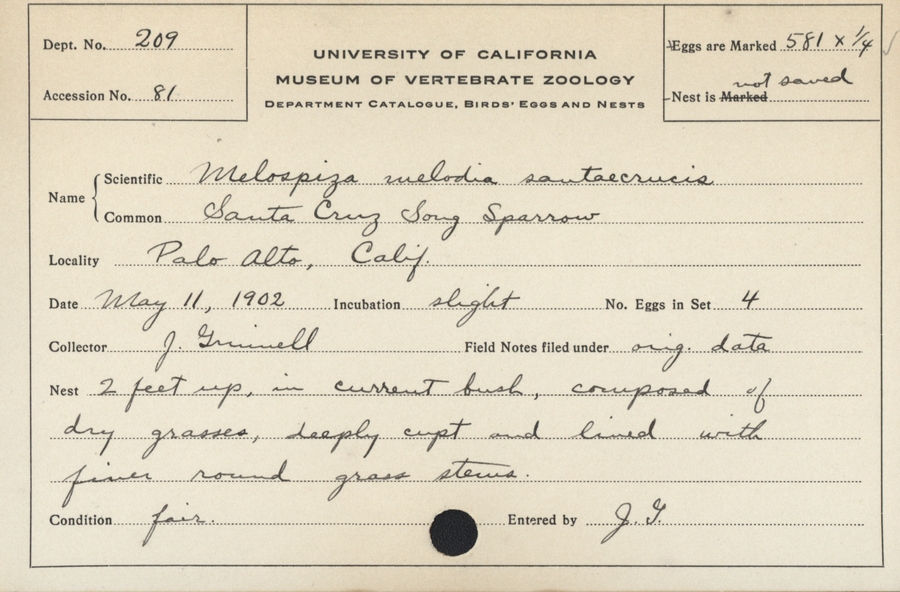 Dept. No. 209
Accession No. 81
UNIVERSITY OF CALIFORNIA
MUSEUM OF VERTEBRATE ZOOLOGY
DEPARTMENT CATALOGUE, BIRDS' EGGS AND NESTS
Eggs are Marked 581 x 1/4
not saved
Nest is Marked
Name
Scientific Melospiza melodia santaecrucis
Common Santa Cruz Song Sparrow
Locality Palo Alto, Calif.
Date May 11, 1902 Incubation slight No. Eggs in Set 4
Collector J. Grinnell Field Notes filed under orig. data
Nest 2 feet up, in current bush, composed of
dry grasses, deeply cupt and lined with
finer round grass stems.
Condition fair. Entered by J. G.